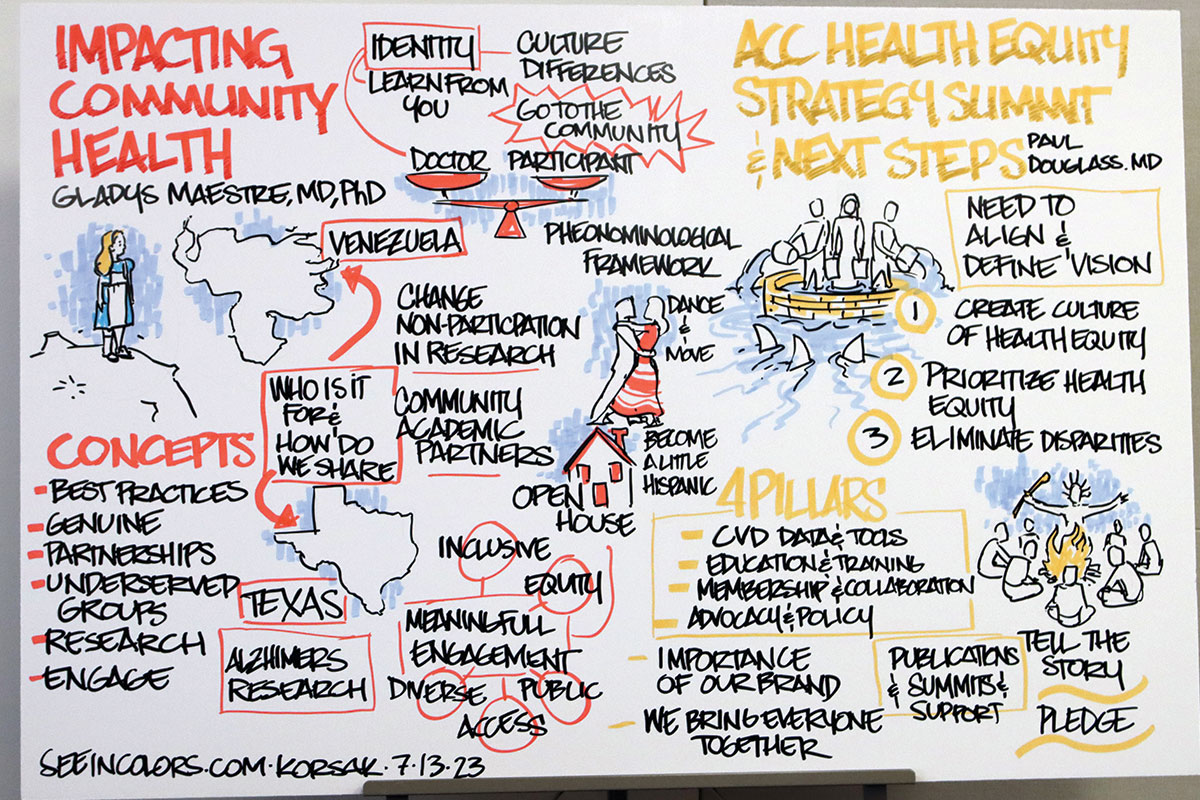 IMPACTING
COMMUNITY
HEALTH
GLADYS MAESTRE, MD, PhD
IDENTITY
CULTURE
DIFFERENCES
LEARN FROM
YOU
GO TO THE
COMMUNITY
DOCTOR PARTICIPANT
VENEZUELA
PHEONOMINOLOGICAL
FRAMEWORK
CHANGE
NON-PARTICPATION
IN RESEARCH
DANCE
&
MOVE
WHO IS IT
FOR &
HOW DO
WE SHARE
COMMUNITY
ACADEMIC
PARTNERS
BECOME
A LITTLE
HISPANIC
OPEN
HOUSE
CONCEPTS
- BEST PRACTICES
- GENUINE
- PARTNERSHIPS
- UNDERSERVED
GROUPS
- RESEARCH
- ENGAGE
TEXAS
ALZHIMERS
RESEARCH
INCLUSIVE
EQUITY
MEANINGFULL
ENGAGEMENT
DIVERSE PUBLIC
ACCESS
SEEINCOLORS.COM · KORSAK · 7·13·23
ACC HEALTH EQUITY
STRATEGY SUMMT
& NEXT STEPS
PAUL
DOUGLASS. MD
NEED TO
ALIGN &
DEFINE VISION
1 CREATE CULTURE
OF HEALTH EQUITY
2 PRIORITIZE HEALTH
EQUITY
3 ELIMINATE DISPARITIES
4 PILLARS
- CVD DATA & TOOLS
- EDUCATION & TRAINING
- MEMBERSHIP & COLLABORATION
- ADVOCACY & POLICY
- IMPORTANCE
OF OUR BRAND
- WE BRING EVERYONE
TOGETHER
PUBLICATIONS
& SUMMITS &
SUPPORT
TELL THE
STORY
PLEDGE